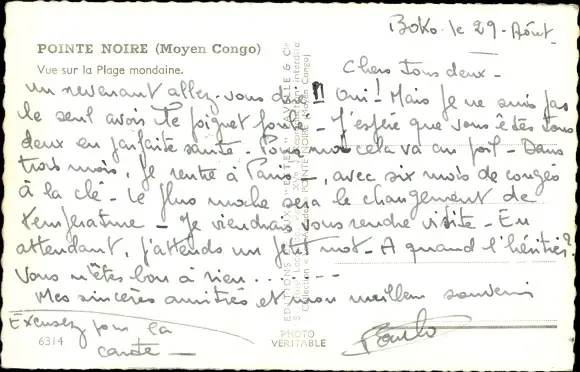 Boko. le 29. Août.
POINTE NOIRE (Moyen Congo)
Vue sur la Plage mondaine.
Chers tous deux -
un revenant allez-vous dire !! Oui! Mais je ne suis pas
le seul avoir le poignet foulé - J'espère que vous êtes tous
deux en parfaite santé - Pour moi cela va au poil - Dans
trois mois, je rentre à Paris -, avec six mois de congés
à la clé - Le plus moche sera le changement de
température - Je viendrai vous rendre visite - En
attendant, j'attends un petit mot - A quand l'héritier?
Vous n'êtes bon à rien . . . . . .
Mes sincères amitiés et mon meilleur souvenir
Excusez pour la
carte -
6314
PHOTO
VERITABLE